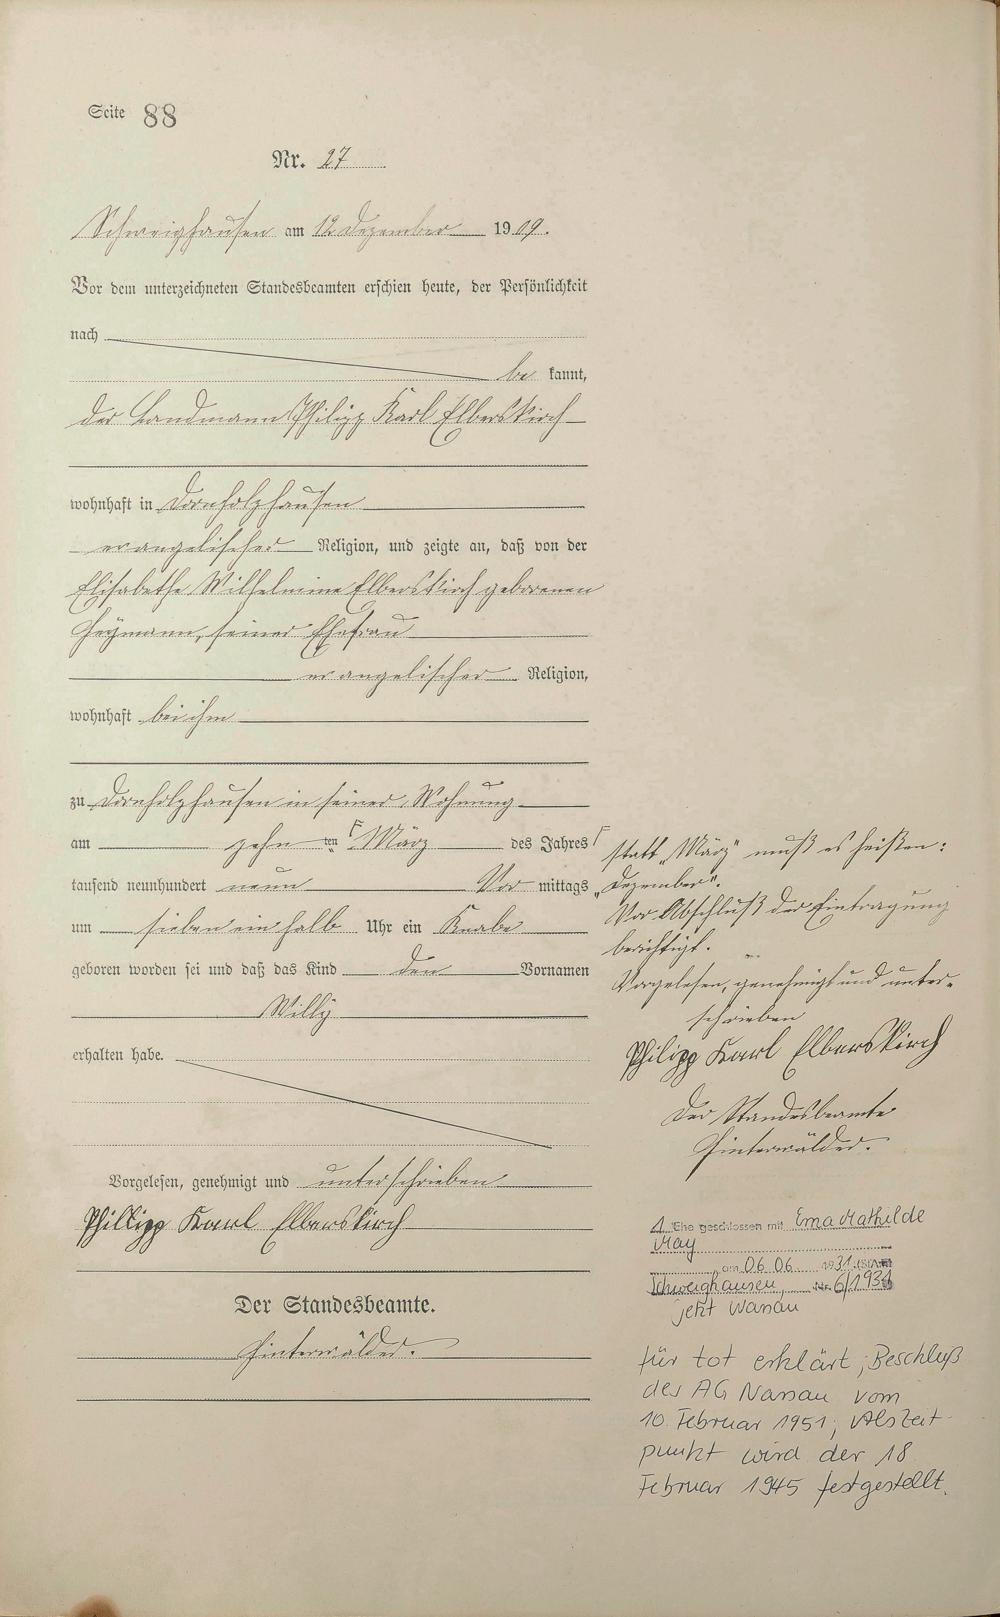 Seite 88
Nr. 27
Schweighausen am 12 Dezember 1909.
Vor dem unterzeichneten Standesbeamten erschien heute, der Persönlichkeit
nach
be kannt,
der Landmann Philipp Karl Elberskirch
wohnhaft in Dornholzhausen
evangelischer Religion, und zeigte an, daß von der
Elisabethe Wilhelmine Elberskirch geborenen
Heymann, seiner Ehefrau
evangelischer Religion,
wohnhaft bei ihm
zu Dornholzhausen in seiner Wohnung
am zehn ten März des Jahres
tausend neunhundert neun Vor mittags
um sieben ein halb Uhr ein Knabe
geboren worden sei und daß das Kind den Vornamen
Willy
erhalten habe.
Vorgelesen, genehmigt und unterschrieben
Phillipp Karl Elberskirch
Der Standesbeamte.
Hinterwälder.
statt „März" muß es heißen:
„Dezember".
Vor Abschluß der Eintragung
berichtigt.
Vorgelesen, genehmigt und unter-
schrieben
Philipp Karl Elberskirch
Der Standesbeamte
Hinterwälder.
1. Ehe geschlossen mit Erna Mathilde
May
am 06.06. 1931 (StA
Schweighausen, Nr. 6/1931
jetzt Nassau
für tot erklärt; Beschluß
des AG Nassau vom
10. Februar 1951; Als Zeit-
punkt wird der 18
Februar 1945 festgestellt.